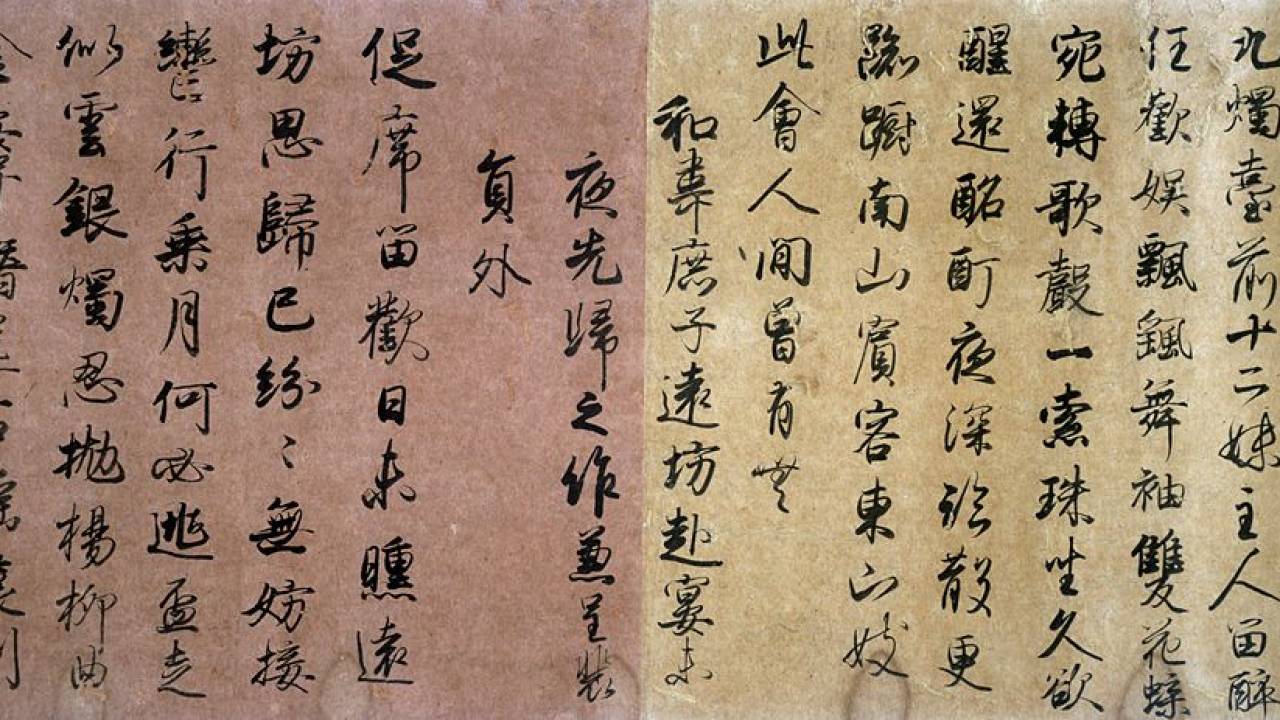 九燭臺前十二姝主人留醉
任歡娛飄颻舞袖雙花蝶
宛轉歌聲一索珠坐久欲
醒還酩酊夜深臨散更
踟躕南山賓客東山妓
此會人間曾有無
和韋庶子遠坊赴宴未
夜先歸之作兼呈裴
員外
促席留歡日未曛遠
坊思歸已紛〻無妨按
轡行乘月何必逃盃走
似雲銀燭忍拋楊柳曲